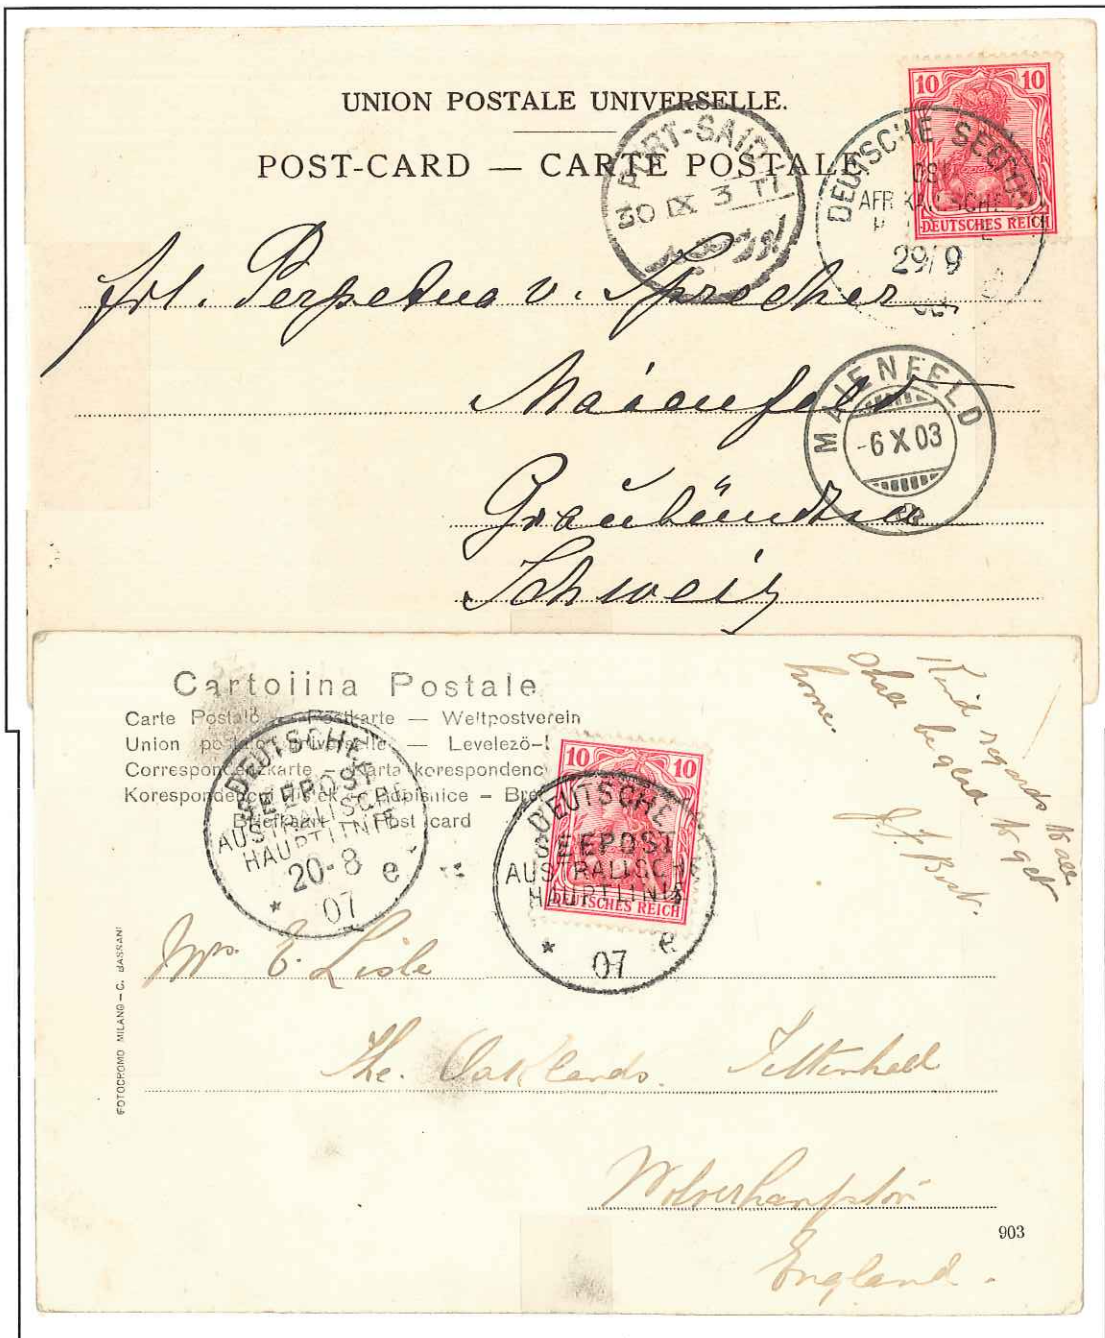 UNION POSTALE UNIVERSELLE.
POST-CARD — CARTE POSTALE
10 10
DEUTSCHES REICH
PORT-SAID
30 IX 3
DEUTSCHE SEEPOST
29/9
Frl. Perpetua v. Sprecher
Maienfeld
MAIENFELD
-6 X 03
Graubünden
Schweiz
Cartoiina Postale
Carte Postale — Postkarte — Weltpostverein
Union postale universelle — Levelező-l
Correspondenzkarte – Karta korespondenc
Briefkaart Post card
DEUTSCHE
SEEPOST
AUSTRALISCHE
HAUPTLINIE
20-8 e
* 07
10 10
DEUTSCHES REICH
DEUTSCHE
SEEPOST
AUSTRALISCHE
HAUPTLINIE
* 07 e
Kind regards to all
Shall be glad to get
home.
Mrs. E. Lisle
The. Oaklands. Tettenhall
Wolverhampton
England.
FOTOCROMO MILANO – C. BASSANI
903